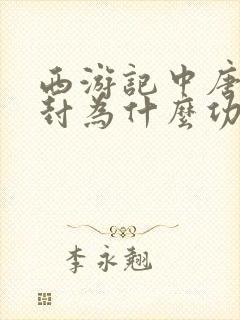 西游記中唐
封為什麼功
李永翹